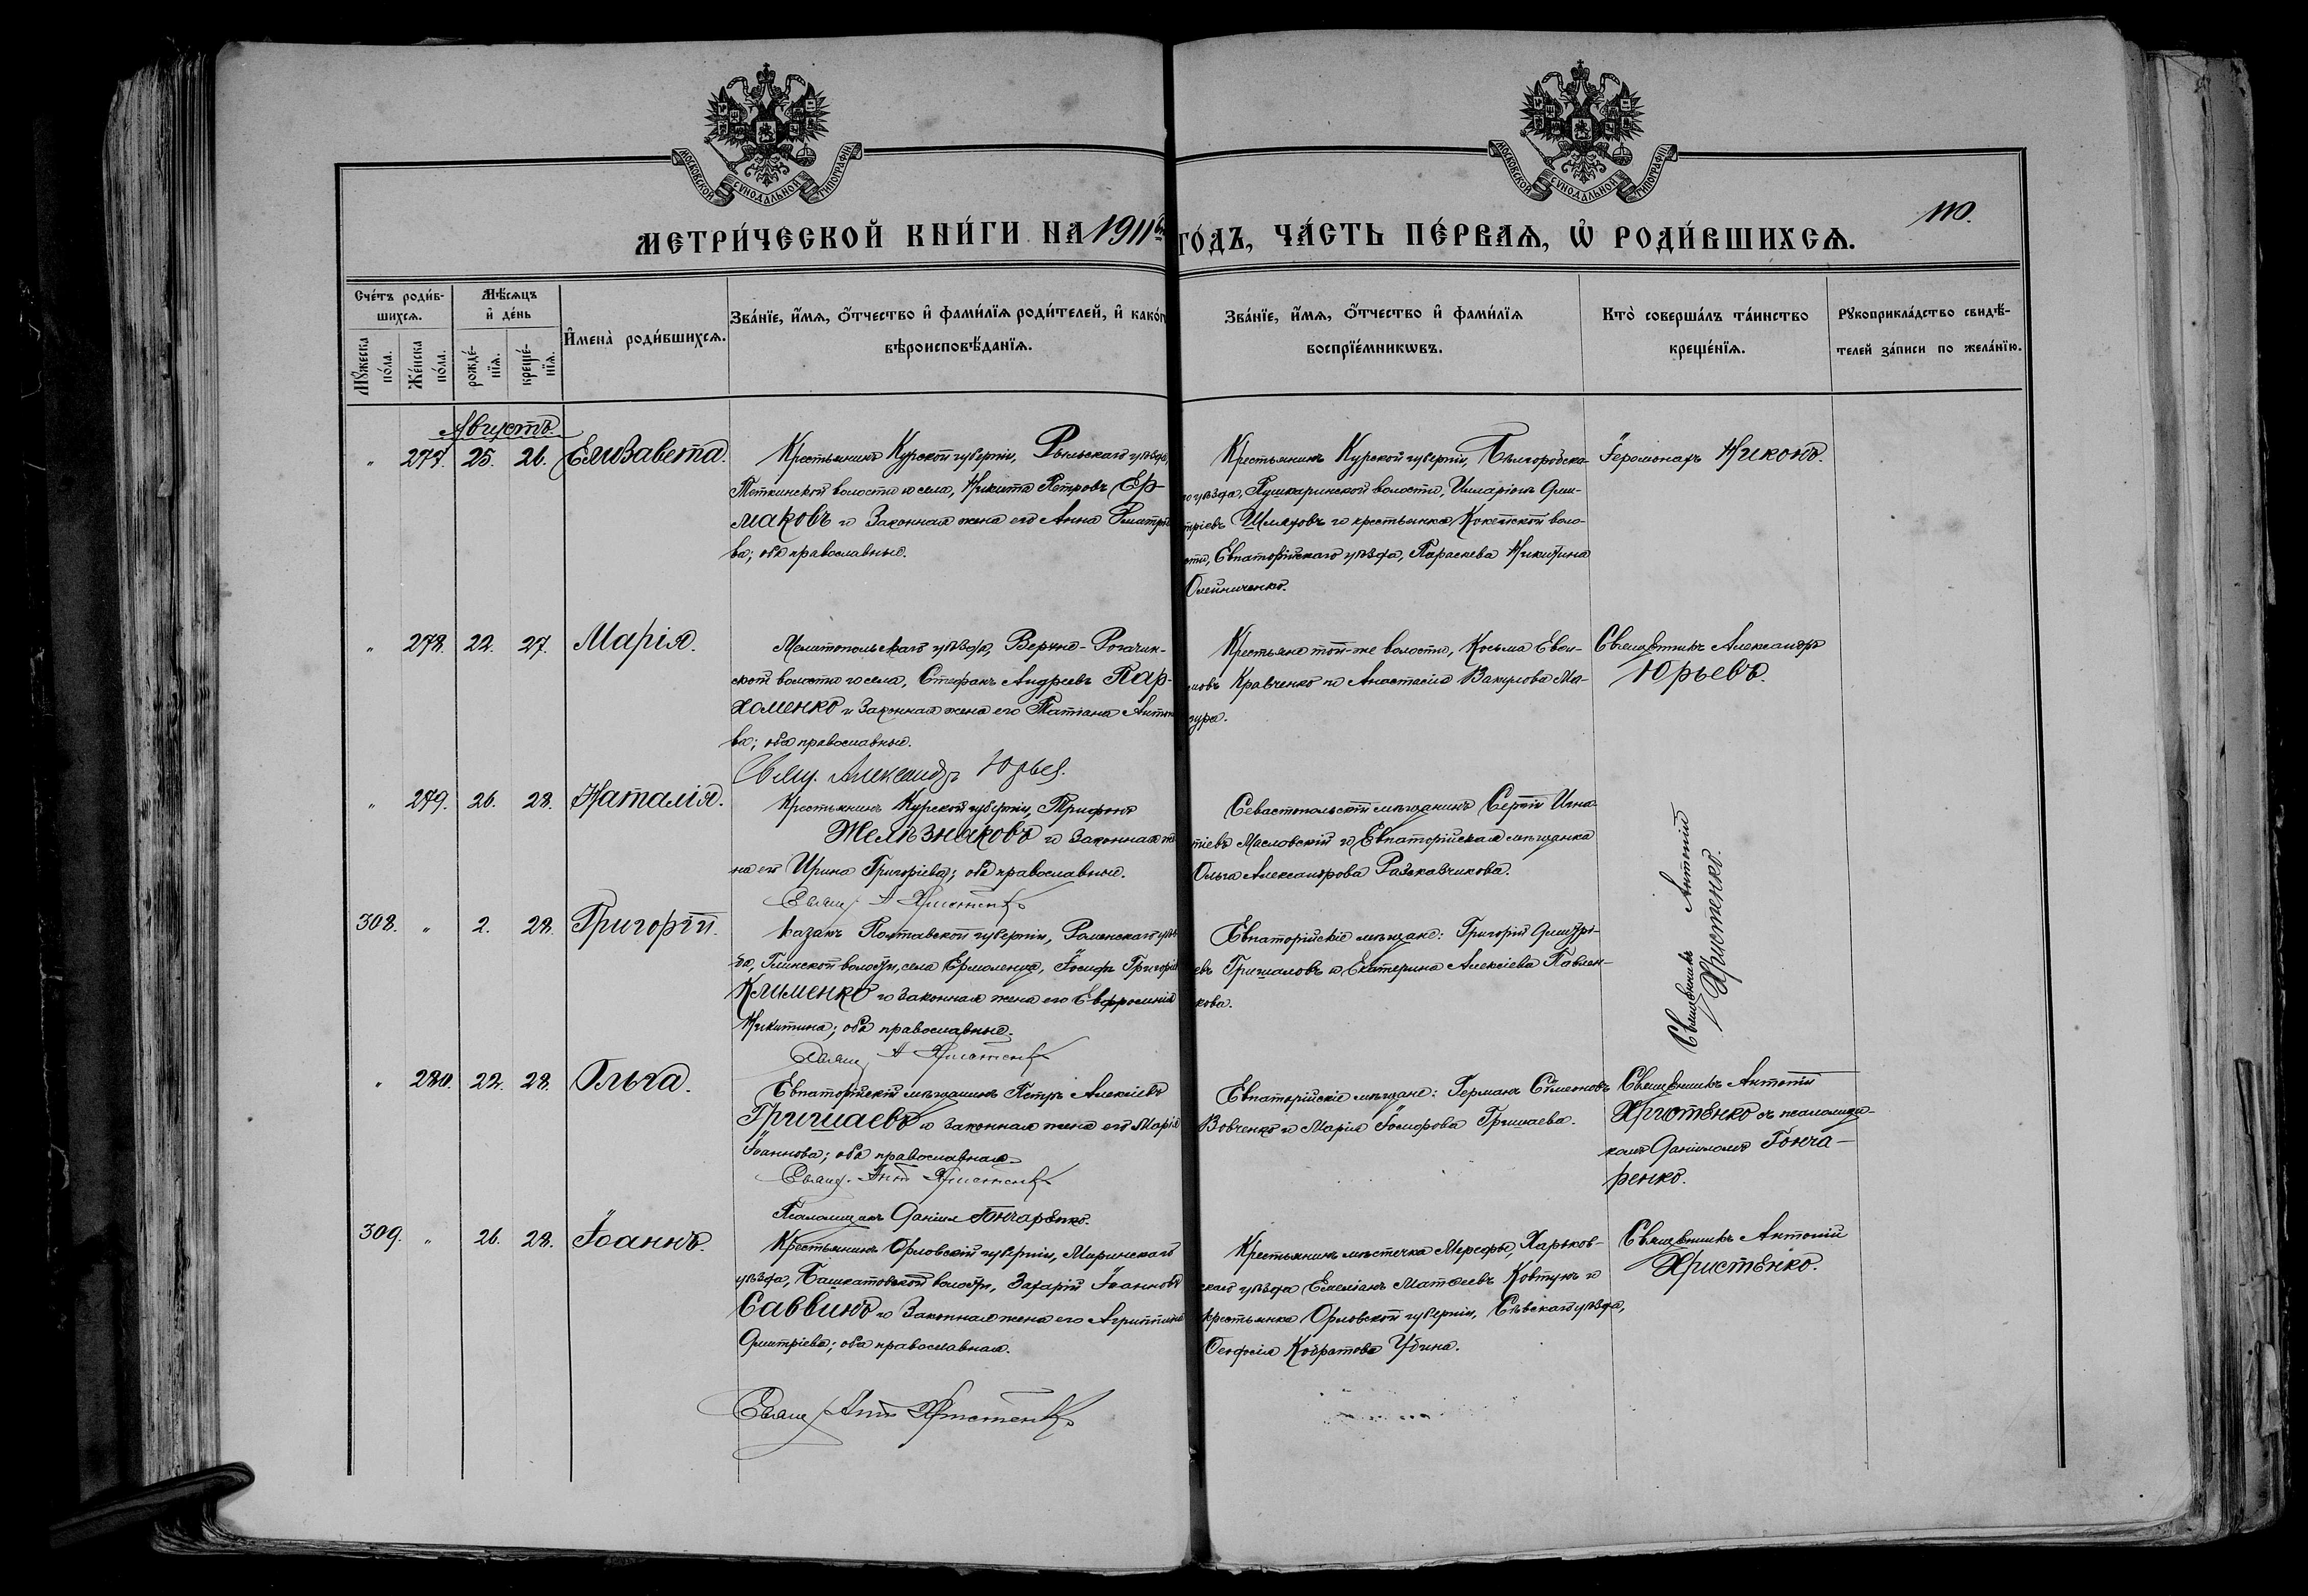 МОСКОВСКОЙ СѴНОДАЛЬНОЙ ТИПОГРАФІИ
МОСКОВСКОЙ СѴНОДАЛЬНОЙ ТИПОГРАФІИ
110.
МЕТРИ́ЧЕСКОЙ КНИ́ГИ НА 1911й ГО́ДЪ, ЧА́СТЬ ПЕ́РВАѦ, Ѡ҆ РОДИ́ВШИХСѦ.
Сче́тъ роди́в-
шихсѧ.
Мꙋ́жеска по́ла.
Же́нска по́ла.
Мѣ́сѧцъ
и҆ де́нь
рожде́-
нїѧ.
креще́-
нїѧ.
И҆мена̀ роди́вшихсѧ.
Зва́нїе, и҆́мѧ, ѻ҆́тчество и҆ фами́лїѧ роди́телей, и҆ како́гѡ
вѣроисповѣ́данїѧ.
Зва́нїе, и҆́мѧ, ѻ҆́тчество и҆ фами́лїѧ
воспрїе́мникѡвъ.
Кто̀ соверша́лъ та́инство
креще́нїѧ.
Рꙋкоприкла́дство свидѣ́-
телей за́писи по жела́нїю.
Августъ.
„ 277. 25. 26. Елизавета.
Крестьянинъ Курской губерніи, Рыльскаго уѣзда,
Теткинской волости и села, Никита Петровъ Ер-
маковъ и законная жена его Анна Дмитріе
ва; оба православные.
Крестьянинъ Курской губерніи, Бѣлгородска-
го уѣзда, Пушкаринской волости, Иларіонъ Дми-
тріевъ Шляховъ и крестьянка Кокейской воло-
сти, Евпаторійскаго уѣзда, Параскева Никитина
Олейниченко.
Іеромонахъ Никонъ.
„ 278. 22. 27. Марія.
Мелитопольскаго уѣзда, Верхне-Рогачик-
ской волости и села, Стефанъ Андреевъ Пар-
хоменко и законная жена его Татіана Антоно
ва; оба православные.
Свящ. Александръ Юрьев.
Крестьяне той-же волости, Косьма Евѳи-
мовъ Кравченко и Анастасія Вакулова Ма-
зура.
Священникъ Александръ
Юрьевъ.
„ 279. 26. 28. Наталія.
Крестьянинъ Курской губерніи, Трифонъ
Желѣзняковъ и законная же
на его Ирина Григоріева; оба православные.
Свящ. А Христенко
Севастопольскій мѣщанинъ Сергій Игна-
тіевъ Масловскій и Евпаторійская мѣщанка
Ольга Александрова Разсказчикова.
Священникъ Антоній
Христенко.
308. „ 2. 28. Григорій.
Казакъ Полтавской губерніи, Роменскаго уѣз
да, Глинской волости, села Ермоленца, Іосифъ Григоріе
Клименко и законная жена его Евфросинія
Никитина; оба православные.
Свящ. А Христенко
Евпаторійскіе мѣщане: Григорій Дмитрі-
евъ Гришаловъ и Екатерина Алексіева Павлен-
кова.
„ 280. 22. 28. Ольга.
Евпаторійскій мѣщанинъ Петръ Алексіевъ
Гришаевъ и законная жена его Марія
Іоаннова; оба православная.
Свящ. Ант Христенко
Псаломщикъ Даніил Гончаренко.
Евпаторійскіе мѣщане: Германъ Сѵмеоновъ
Вовченко и Марія Іосифова Гришаева.
Священникъ Антоній
Христенко съ псаломщи-
комъ Даніиломъ Гонча-
ренко.
309. „ 26. 28. Іоаннъ.
Крестьянинъ Орловскій губерніи,
уѣзда, Башкатовской волости, Захарій Іоанновъ
Саввинъ и законная жена его Агриппина
Дмитріева; оба православная.
Свящ Ант Христенко
Крестьянинъ мѣстечка Мерефы, Харьков-
скаго уѣзда Емеліанъ Матѳеевъ Ковтунъ и
крестьянка Орловской губерніи, Сѣвскаго уѣзда,
Ѳеодосія Убина.
Священникъ Антоній
Христенко.